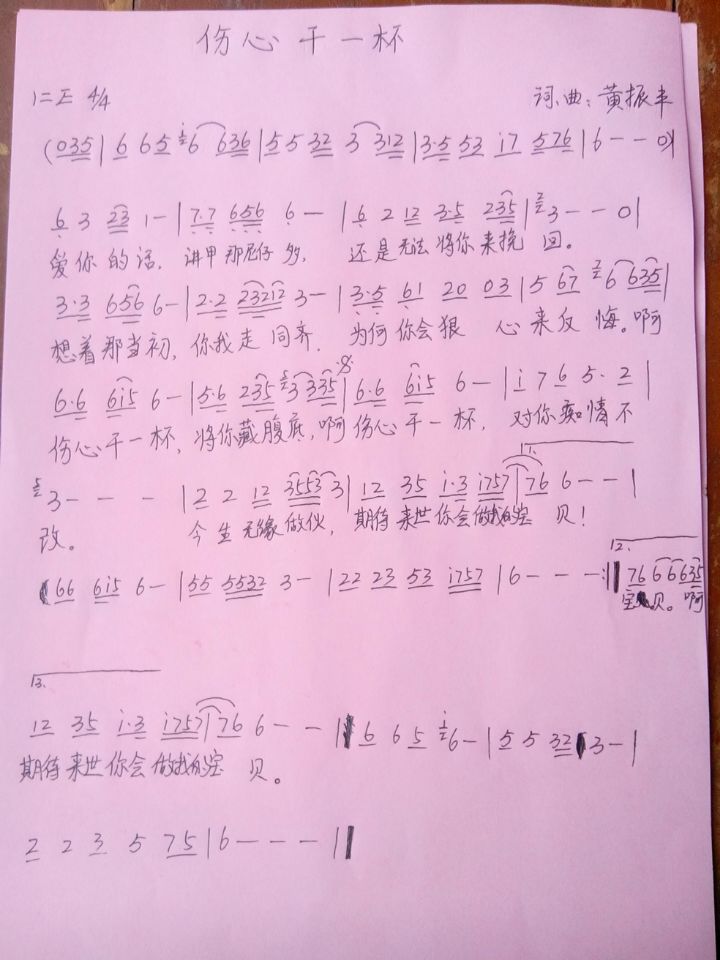 伤心干一杯
1=E 4/4 词.曲:黄振丰
(035|6 665 i6 636|5 5 32 3 312|3·5 53 i7 576|6--0)|
6 3 23 1-|7·7 656 6-|6 2 12 3·5 235|23--0|
爱你的话,讲甲那尼仔多,还是无法将你来挽回。
3·3 656 6-|2·2 23212 3-|3·5 61 20 03|5 67 26 635|
想着那当初,你我走同齐.为何你会狠心来反悔。啊
6·6 6i5 6-|5·6 235 53 335|6·6 6i5 6-|i 7 6 5· 2|
伤心干一杯,将你藏腹底,啊伤心干一杯,对你痴情不
53- - -|2 2 12 3553 3|12 35 i·3 i757|76 6--|
改。今生无缘做伙,期待来世你会做我的宝贝!
66 6i5 6-|55 5532 3-|22 23 53 i757|6---:|| 76 6 6 635
12.
宝贝。啊
13.
12 35 i·3 i757|76 6--|6 6 5 i6-|5 5 32 3-|
期待来世你会做我的宝贝。
2 2 3 5 75|6---||